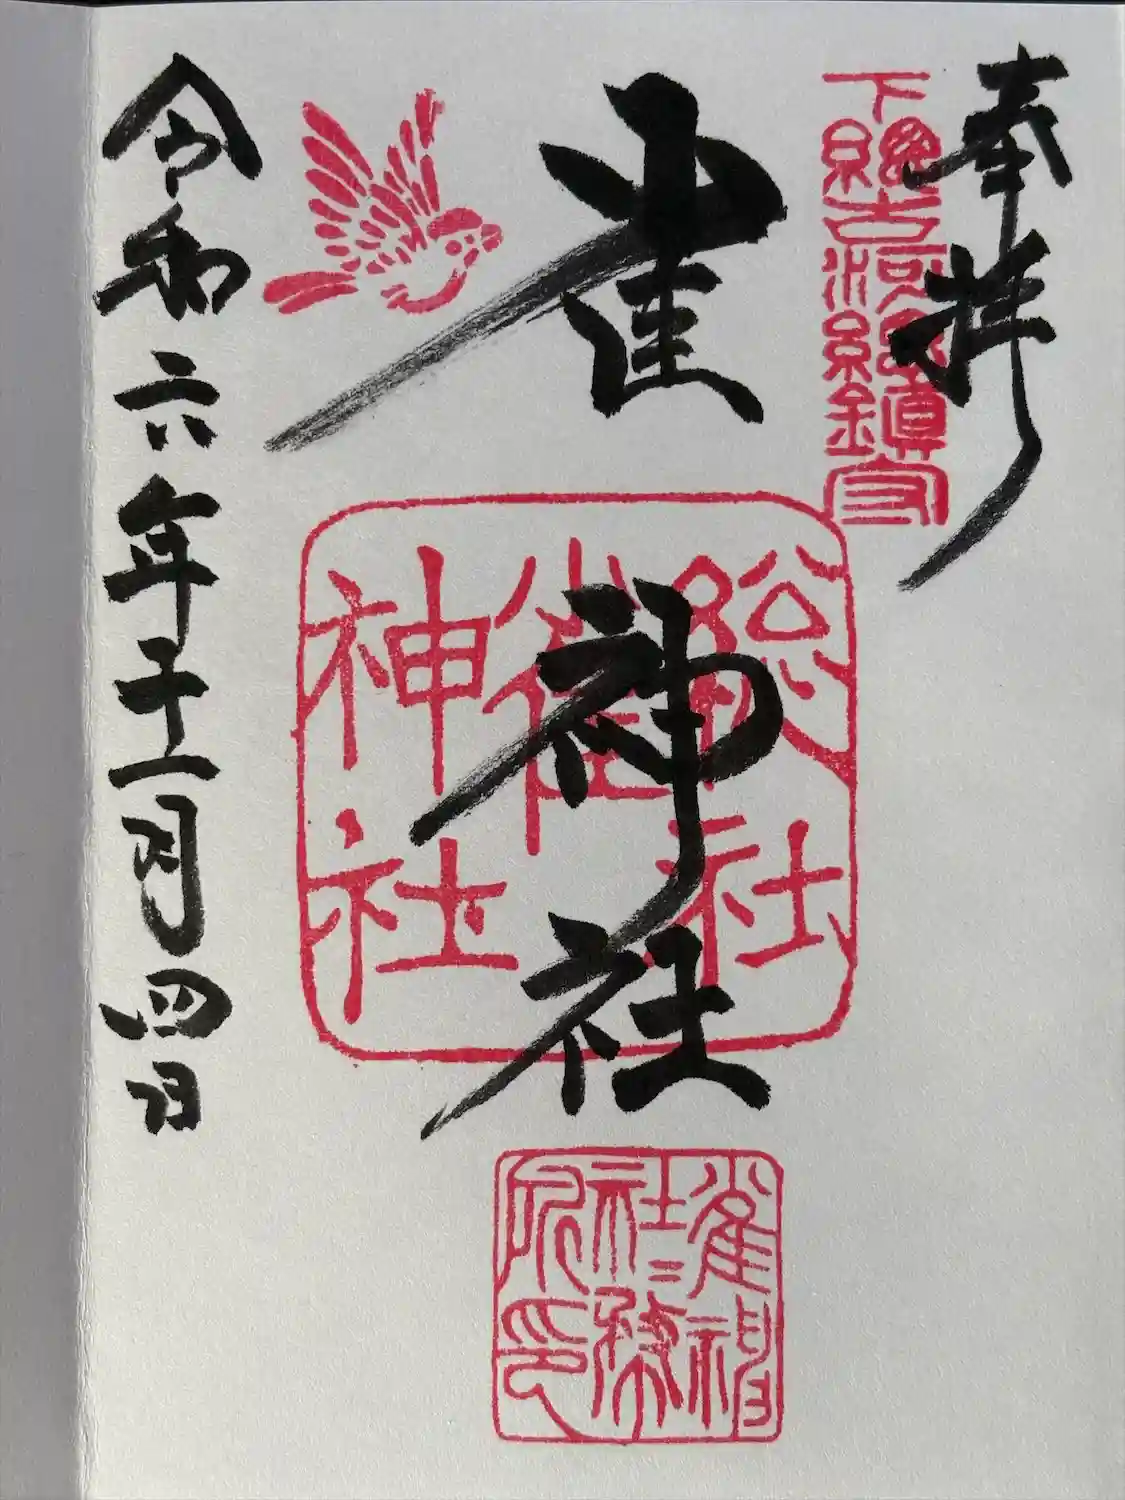 奉拝
下總古河總鎮守
雀神社
総社
雀
神社
雀神
社々務
所印
令和六年十一月四日